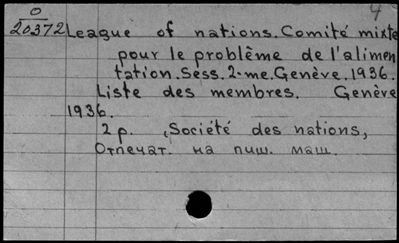 4
О
20372 League of nations. Comité mixte
pour le problême de l'alimen
tation. Sess. 2-me. Genève. 1936.
Liste des membres. Genève
1936.
2 p. (Société des nations)
Отпечат. на пиш. маш.